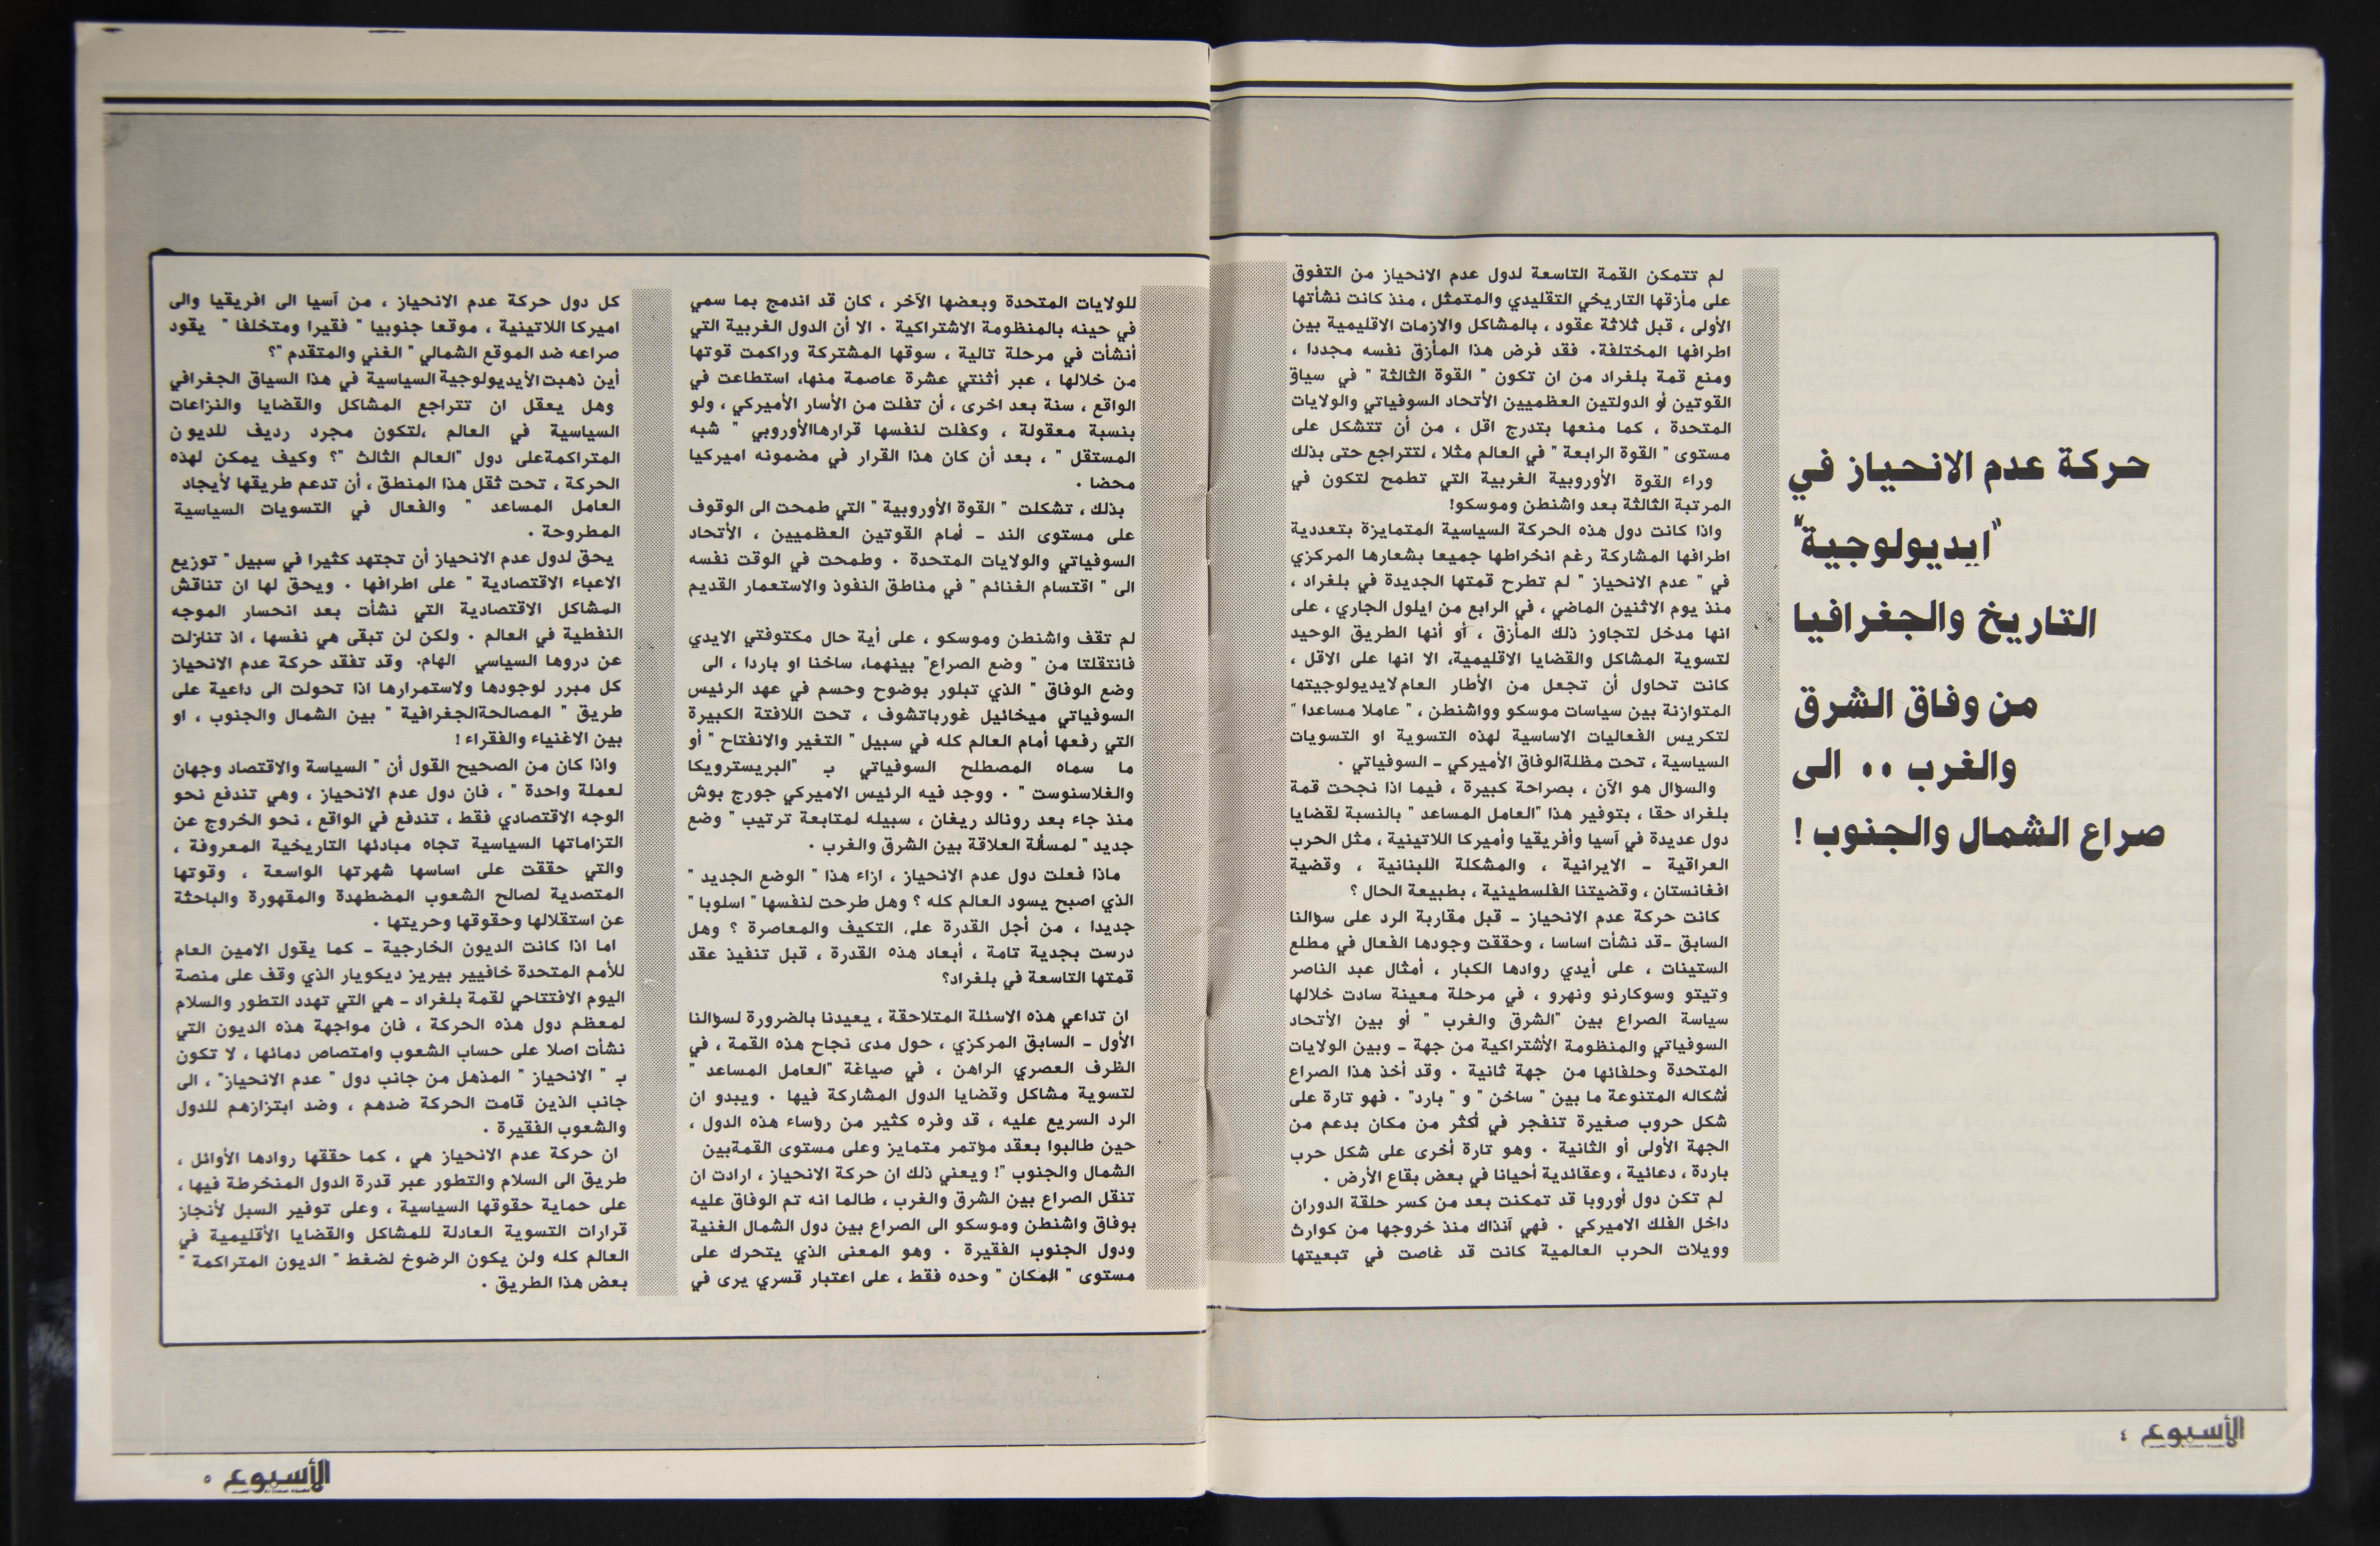 حركة عدم الانحياز في
"ايديولوجية"
التاريخ والجغرافيا
من وفاق الشرق
والغرب .. الى
صراع الشمال والجنوب !
لم تتمكن القمة التاسعة لدول عدم الانحياز من التفوق
على مأزقها التاريخي التقليدي والمتمثل ، منذ كانت نشأتها
الأولى ، قبل ثلاثة عقود ، بالمشاكل والازمات الاقليمية بين
اطرافها المختلفة. فقد فرض هذا المأزق نفسه مجددا ،
ومنع قمة بلغراد من ان تكون " القوة الثالثة " في سياق
القوتين أو الدولتين العظميين الأتحاد السوفياتي والولايات
المتحدة ، كما منعها بتدرج اقل ، من أن تتشكل على
مستوى " القوة الرابعة " في العالم مثلا ، لتتراجع حتى بذلك
وراء القوة الأوروبية الغربية التي تطمح لتكون في
المرتبة الثالثة بعد واشنطن وموسكو!
واذا كانت دول هذه الحركة السياسية المتمايزة بتعددية
اطرافها المشاركة رغم انخراطها جميعا بشعارها المركزي
في " عدم الانحياز " لم تطرح قمتها الجديدة في بلغراد ،
منذ يوم الاثنين الماضي ، في الرابع من ايلول الجاري ، على
انها مدخل لتجاوز ذلك المأزق ، أو أنها الطريق الوحيد
لتسوية المشاكل والقضايا الاقليمية، الا انها على الاقل ،
كانت تحاول أن تجعل من الأطار العام لايديولوجيتها
المتوازنة بين سياسات موسكو وواشنطن ، " عاملا مساعدا "
لتكريس الفعاليات الاساسية لهذه التسوية او التسويات
السياسية ، تحت مظلةالوفاق الأميركي - السوفياتي .
والسؤال هو الآن ، بصراحة كبيرة ، فيما اذا نجحت قمة
بلغراد حقا ، بتوفير هذا "العامل المساعد " بالنسبة لقضايا
دول عديدة في آسيا وأفريقيا وأميركا اللاتينية ، مثل الحرب
العراقية - الايرانية ، والمشكلة اللبنانية ، وقضية
افغانستان ، وقضيتنا الفلسطينية ، بطبيعة الحال ؟
كانت حركة عدم الانحياز - قبل مقاربة الرد على سؤالنا
السابق -قد نشأت اساسا ، وحققت وجودها الفعال في مطلع
الستينات ، على أيدي روادها الكبار ، أمثال عبد الناصر
وتيتو وسوكارنو ونهرو ، في مرحلة معينة سادت خلالها
سياسة الصراع بين "الشرق والغرب " أو بين الأتحاد
السوفياتي والمنظومة الأشتراكية من جهة - وبين الولايات
المتحدة وحلفائها من جهة ثانية . وقد أخذ هذا الصراع
أشكاله المتنوعة ما بين " ساخن " و " بارد" . فهو تارة على
شكل حروب صغيرة تنفجر في أكثر من مكان بدعم من
الجهة الأولى أو الثانية . وهو تارة أخرى على شكل حرب
باردة ، دعائية ، وعقائدية أحيانا في بعض بقاع الأرض .
لم تكن دول أوروبا قد تمكنت بعد من كسر حلقة الدوران
داخل الفلك الاميركي . فهي آنذاك منذ خروجها من كوارث
وويلات الحرب العالمية كانت قد غاصت في تبعيتها
الأسبوع ٤
للولايات المتحدة وبعضها الآخر ، كان قد اندمج بما سمي
في حينه بالمنظومة الاشتراكية . الا أن الدول الغربية التي
أنشأت في مرحلة تالية ، سوقها المشتركة وراكمت قوتها
من خلالها ، عبر أثنتي عشرة عاصمة منها، استطاعت في
الواقع ، سنة بعد اخرى ، أن تفلت من الأسار الأميركي ، ولو
بنسبة معقولة ، وكفلت لنفسها قرارهاالأوروبي " شبه
المستقل " ، بعد أن كان هذا القرار في مضمونه اميركيا
محضا .
بذلك ، تشكلت " القوة الأوروبية " التي طمحت الى الوقوف
على مستوى الند - أمام القوتين العظميين ، الأتحاد
السوفياتي والولايات المتحدة . وطمحت في الوقت نفسه
الى " اقتسام الغنائم " في مناطق النفوذ والاستعمار القديم
لم تقف واشنطن وموسكو ، على أية حال مكتوفتي الايدي
فانتقلتا من " وضع الصراع" بينهما، ساخنا او باردا ، الى
وضع الوفاق " الذي تبلور بوضوح وحسم في عهد الرئيس
السوفياتي ميخائيل غورباتشوف ، تحت اللافتة الكبيرة
التي رفعها أمام العالم كله في سبيل " التغير والانفتاح " أو
ما سماه المصطلح السوفياتي بـ "البريسترويكا
والغلاسنوست " . ووجد فيه الرئيس الاميركي جورج بوش
منذ جاء بعد رونالد ريغان ، سبيله لمتابعة ترتيب " وضع
جديد " لمسألة العلاقة بين الشرق والغرب .
ماذا فعلت دول عدم الانحياز ، ازاء هذا " الوضع الجديد "
الذي اصبح يسود العالم كله ؟ وهل طرحت لنفسها " اسلوبا "
جديدا ، من أجل القدرة على التكيف والمعاصرة ؟ وهل
درست بجدية تامة ، أبعاد هذه القدرة ، قبل تنفيذ عقد
قمتها التاسعة في بلغراد؟
ان تداعي هذه الاسئلة المتلاحقة ، يعيدنا بالضرورة لسؤالنا
الأول - السابق المركزي ، حول مدى نجاح هذه القمة ، في
الظرف العصري الراهن ، في صياغة "العامل المساعد "
لتسوية مشاكل وقضايا الدول المشاركة فيها . ويبدو ان
الرد السريع عليه ، قد وفره كثير من رؤساء هذه الدول ،
حين طالبوا بعقد مؤتمر متمايز وعلى مستوى القمةبين
الشمال والجنوب "! ويعني ذلك ان حركة الانحياز ، ارادت ان
تنقل الصراع بين الشرق والغرب ، طالما انه تم الوفاق عليه
بوفاق واشنطن وموسكو الى الصراع بين دول الشمال الغنية
ودول الجنوب الفقيرة . وهو المعنى الذي يتحرك على
مستوى " المكان " وحده فقط ، على اعتبار قسري يرى في
كل دول حركة عدم الانحياز ، من آسيا الى افريقيا والى
اميركا اللاتينية ، موقعا جنوبيا " فقيرا ومتخلفا " يقود
صراعه ضد الموقع الشمالي " الغني والمتقدم "؟
أين ذهبت الأيديولوجية السياسية في هذا السياق الجغرافي
وهل يعقل ان تتراجع المشاكل والقضايا والنزاعات
السياسية في العالم ،لتكون مجرد رديف للديون
المتراكمةعلى دول "العالم الثالث "؟ وكيف يمكن لهذه
الحركة ، تحت ثقل هذا المنطق ، أن تدعم طريقها لأيجاد
العامل المساعد " والفعال في التسويات السياسية
المطروحة .
يحق لدول عدم الانحياز أن تجتهد كثيرا في سبيل " توزيع
الاعباء الاقتصادية " على اطرافها . ويحق لها ان تناقش
المشاكل الاقتصادية التي نشأت بعد انحسار الموجه
النفطية في العالم . ولكن لن تبقى هي نفسها ، اذ تنازلت
عن دروها السياسي الهام. وقد تفقد حركة عدم الانحياز
كل مبرر لوجودها ولاستمرارها اذا تحولت الى داعية على
طريق " المصالحةالجغرافية " بين الشمال والجنوب ، او
بين الاغنياء والفقراء !
واذا كان من الصحيح القول أن " السياسة والاقتصاد وجهان
لعملة واحدة " ، فان دول عدم الانحياز ، وهي تندفع نحو
الوجه الاقتصادي فقط ، تندفع في الواقع ، نحو الخروج عن
التزاماتها السياسية تجاه مبادئها التاريخية المعروفة ،
والتي حققت على اساسها شهرتها الواسعة ، وقوتها
المتصدية لصالح الشعوب المضطهدة والمقهورة والباحثة
عن استقلالها وحقوقها وحريتها .
اما اذا كانت الديون الخارجية - كما يقول الامين العام
للأمم المتحدة خافيير بيريز ديكويار الذي وقف على منصة
اليوم الافتتاحي لقمة بلغراد - هي التي تهدد التطور والسلام
لمعظم دول هذه الحركة ، فان مواجهة هذه الديون التي
نشأت اصلا على حساب الشعوب وامتصاص دمائها ، لا تكون
بـ " الانحياز " المذهل من جانب دول " عدم الانحياز" ، الى
جانب الذين قامت الحركة ضدهم ، وضد ابتزازهم للدول
والشعوب الفقيرة .
ان حركة عدم الانحياز هي ، كما حققها روادها الأوائل ،
طريق الى السلام والتطور عبر قدرة الدول المنخرطة فيها ،
على حماية حقوقها السياسية ، وعلى توفير السبل لأنجاز
قرارات التسوية العادلة للمشاكل والقضايا الأقليمية في
العالم كله ولن يكون الرضوخ لضغط " الديون المتراكمة "
بعض هذا الطريق .
الأسبوع ٥